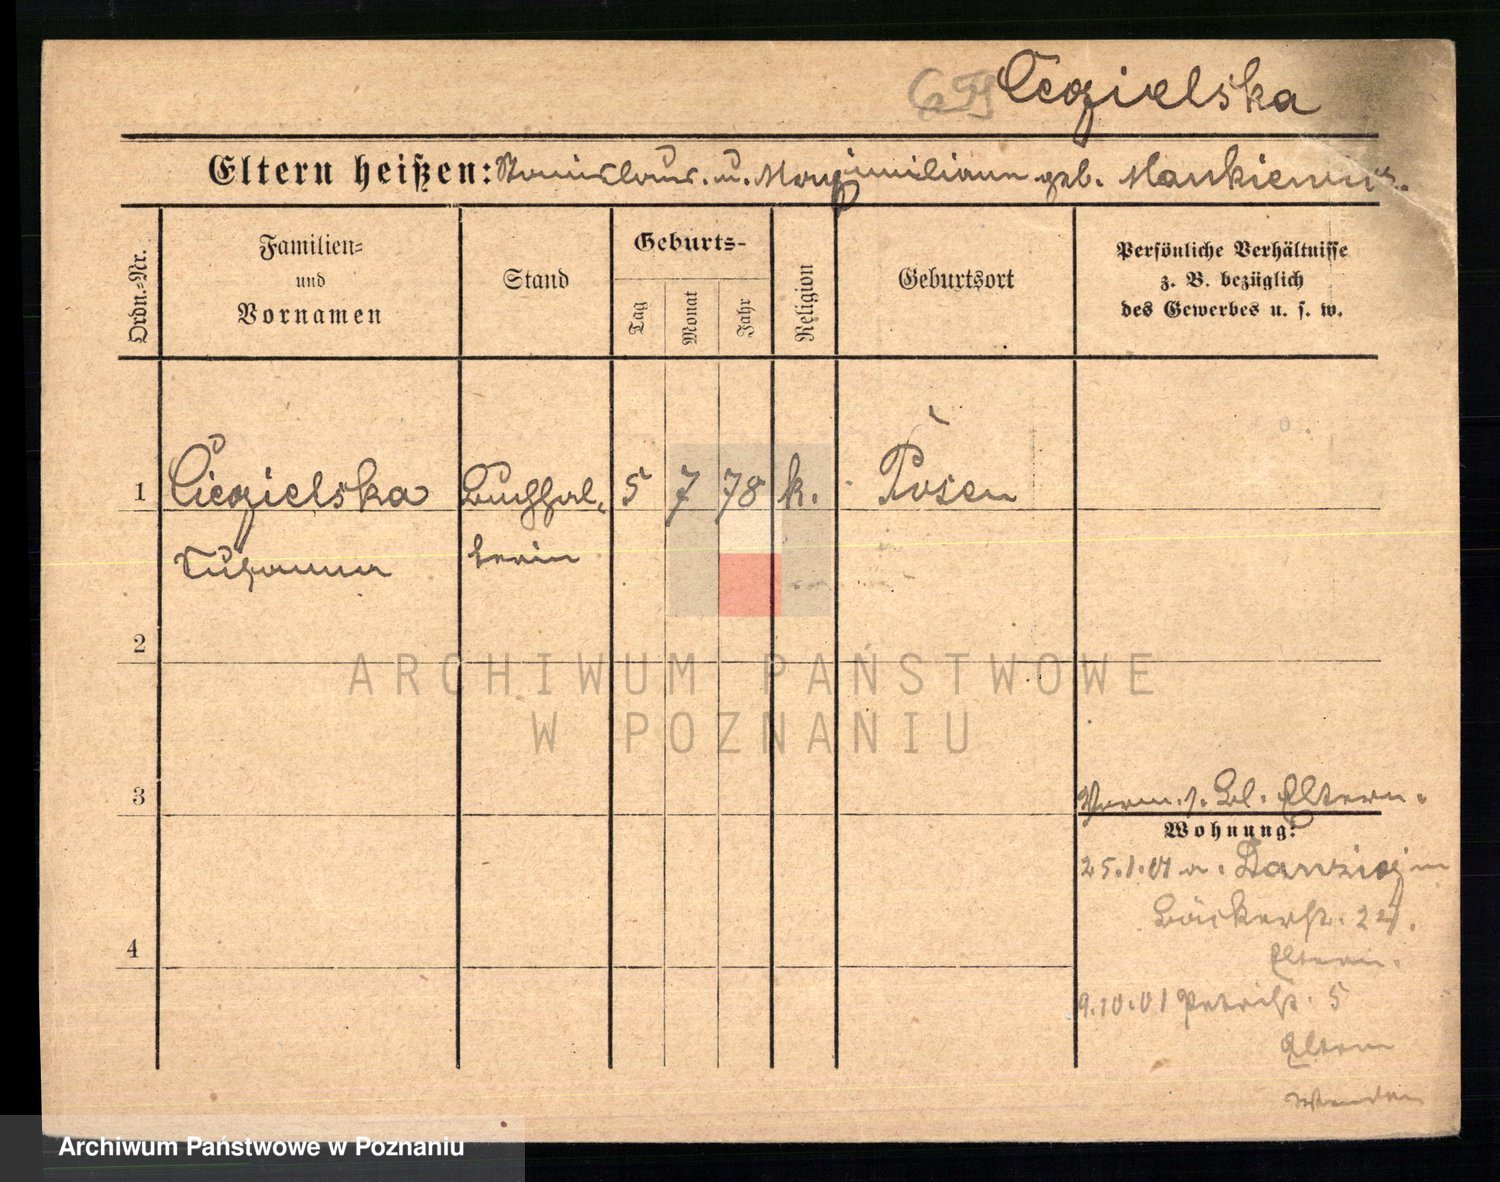 Cegielska
Eltern heißen: Stanislaus. u. Maximiliane geb. Mankiewicz.
Ordn.-Nr.
Familien-
und
Vornamen
Stand
Geburts-
Tag
Monat
Jahr
Religion
Geburtsort
Persönliche Verhältnisse
z. B. bezüglich
des Gewerbes u. s. w.
1 Ciegielska Buchhal- 5 7 78 k. Posen
Susanna terin
2
ARCHIWUM PAŃSTWOWE
W POZNANIU
3
Verm. s. Bl. Eltern.
Wohnung:
25.1.01 a. Danzig
Bäckerstr. 24.
Eltern.
4
9.10.01 Petristr. 5
Eltern
Wenden
Archiwum Państwowe w Poznaniu